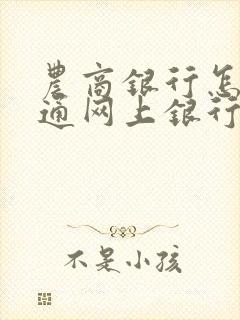 農商银行怎
通网上银行
不是小孩